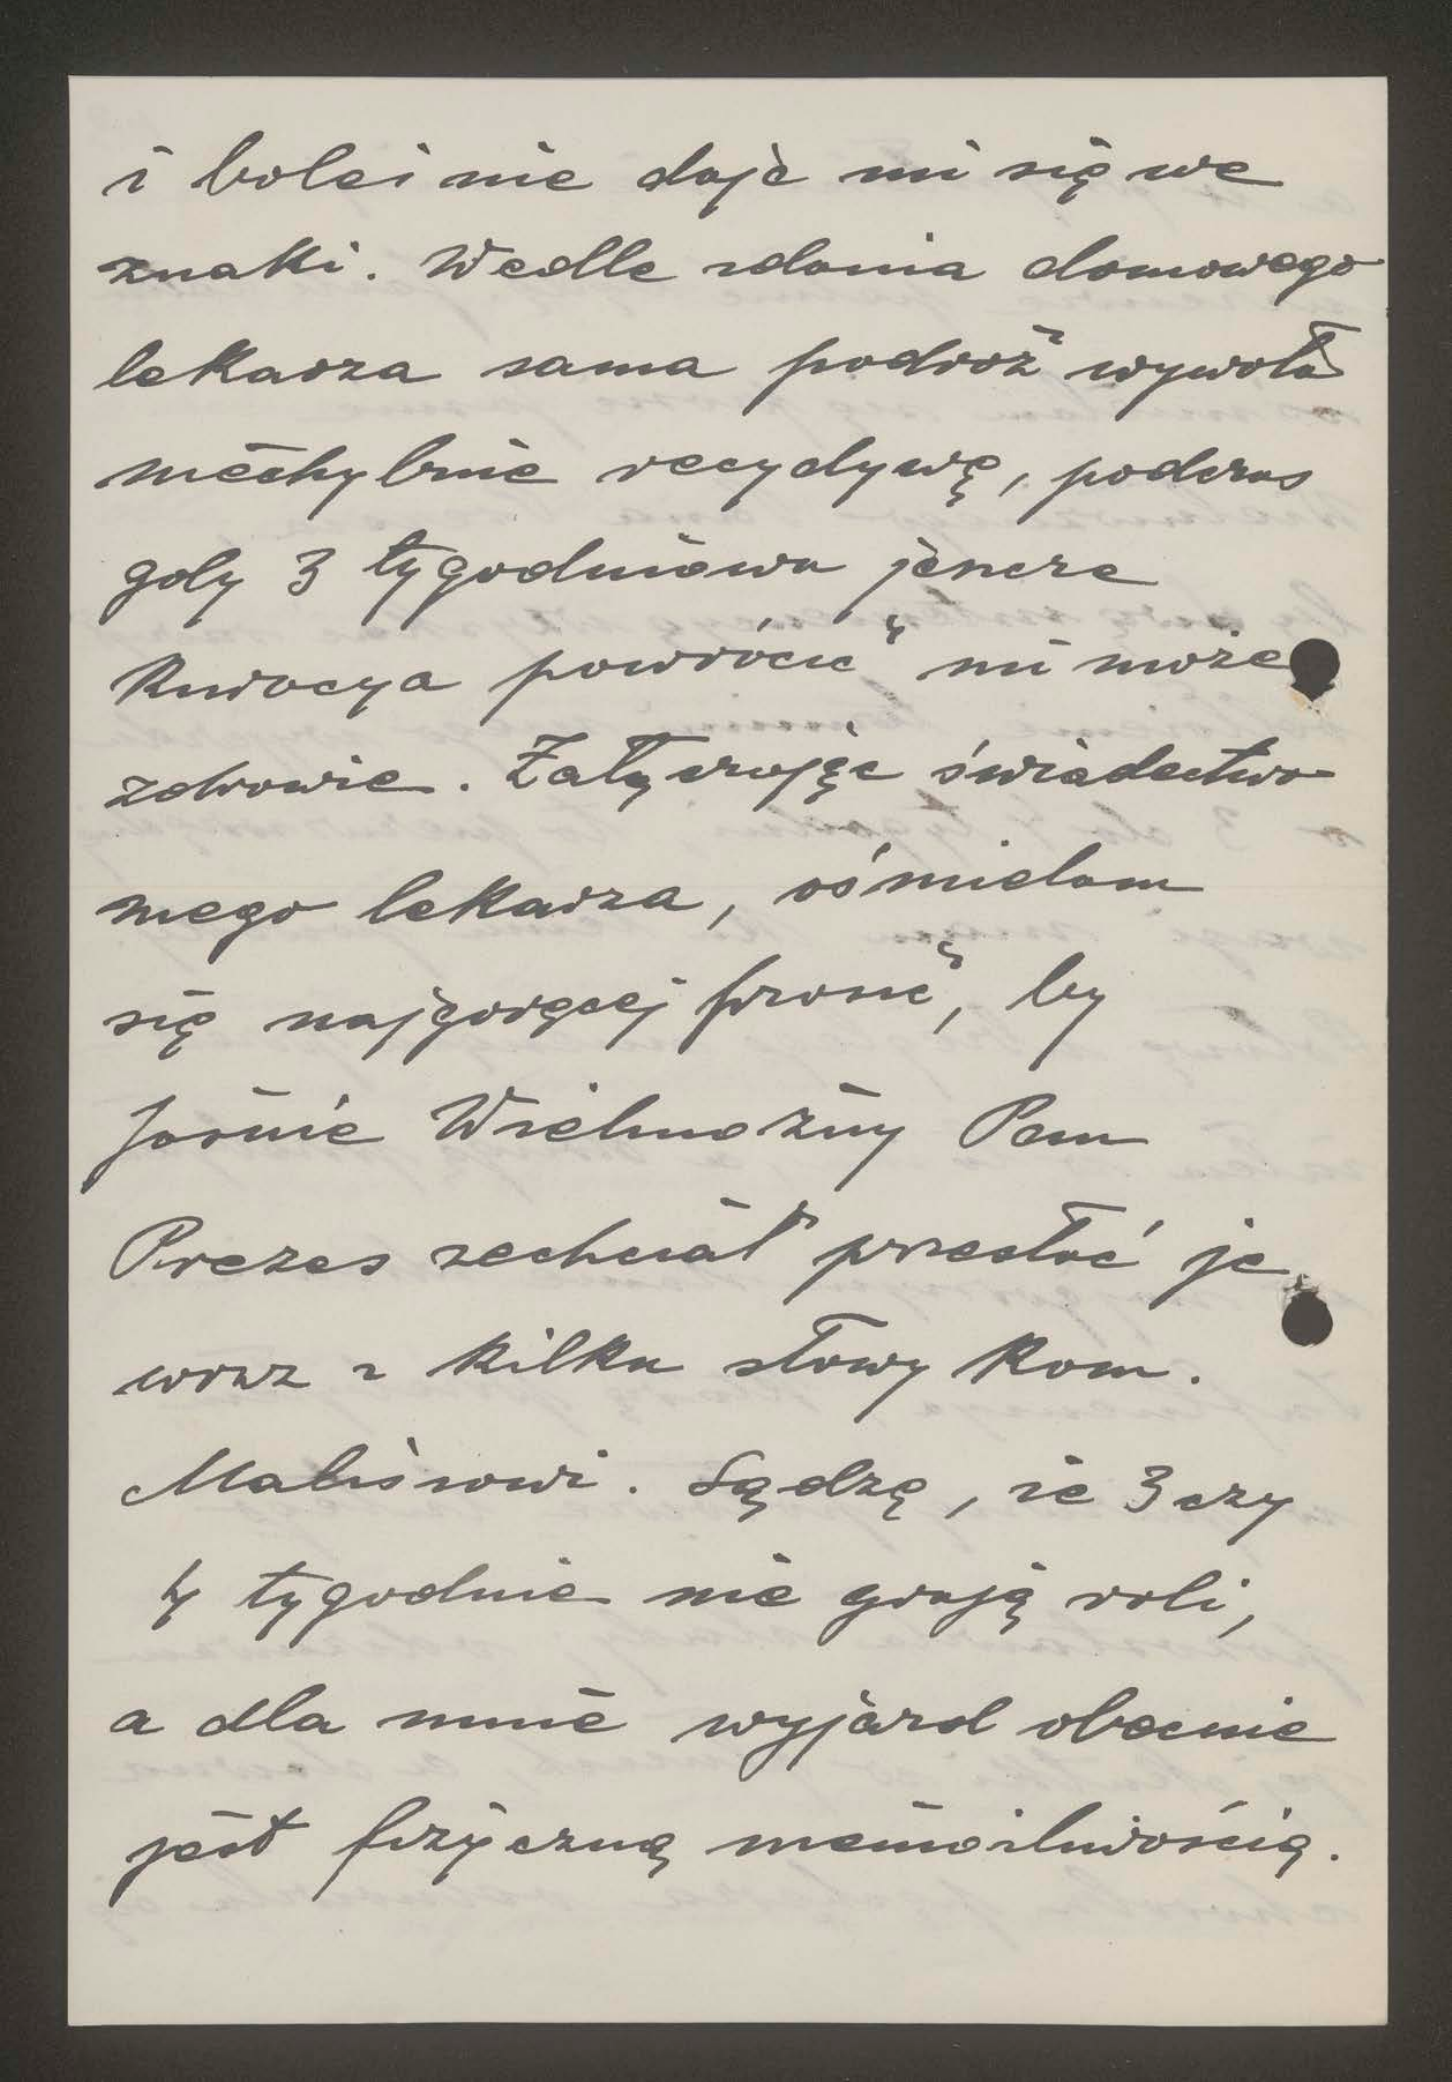 i boleśnie daje mi się we
znaki. Wedle zdania domowego
lekarza sama podróż wywoła
niechybnie recydywę, podczas
gdy 3 tygodniowa jeszcze
kuracya powrócić mi może
zdrowie. Załączając świadectwo
mego lekarza, ośmielam
się najgoręcej prosić, by
Jaśnie Wielmożny Pan
Prezes zechciał przesłać je
wraz z kilku słowy Kom.
Sądzę, że 3 czy
4 tygodnie nie grają roli,
a dla mnie wyjazd obecnie
jest fizyczną niemożliwością.